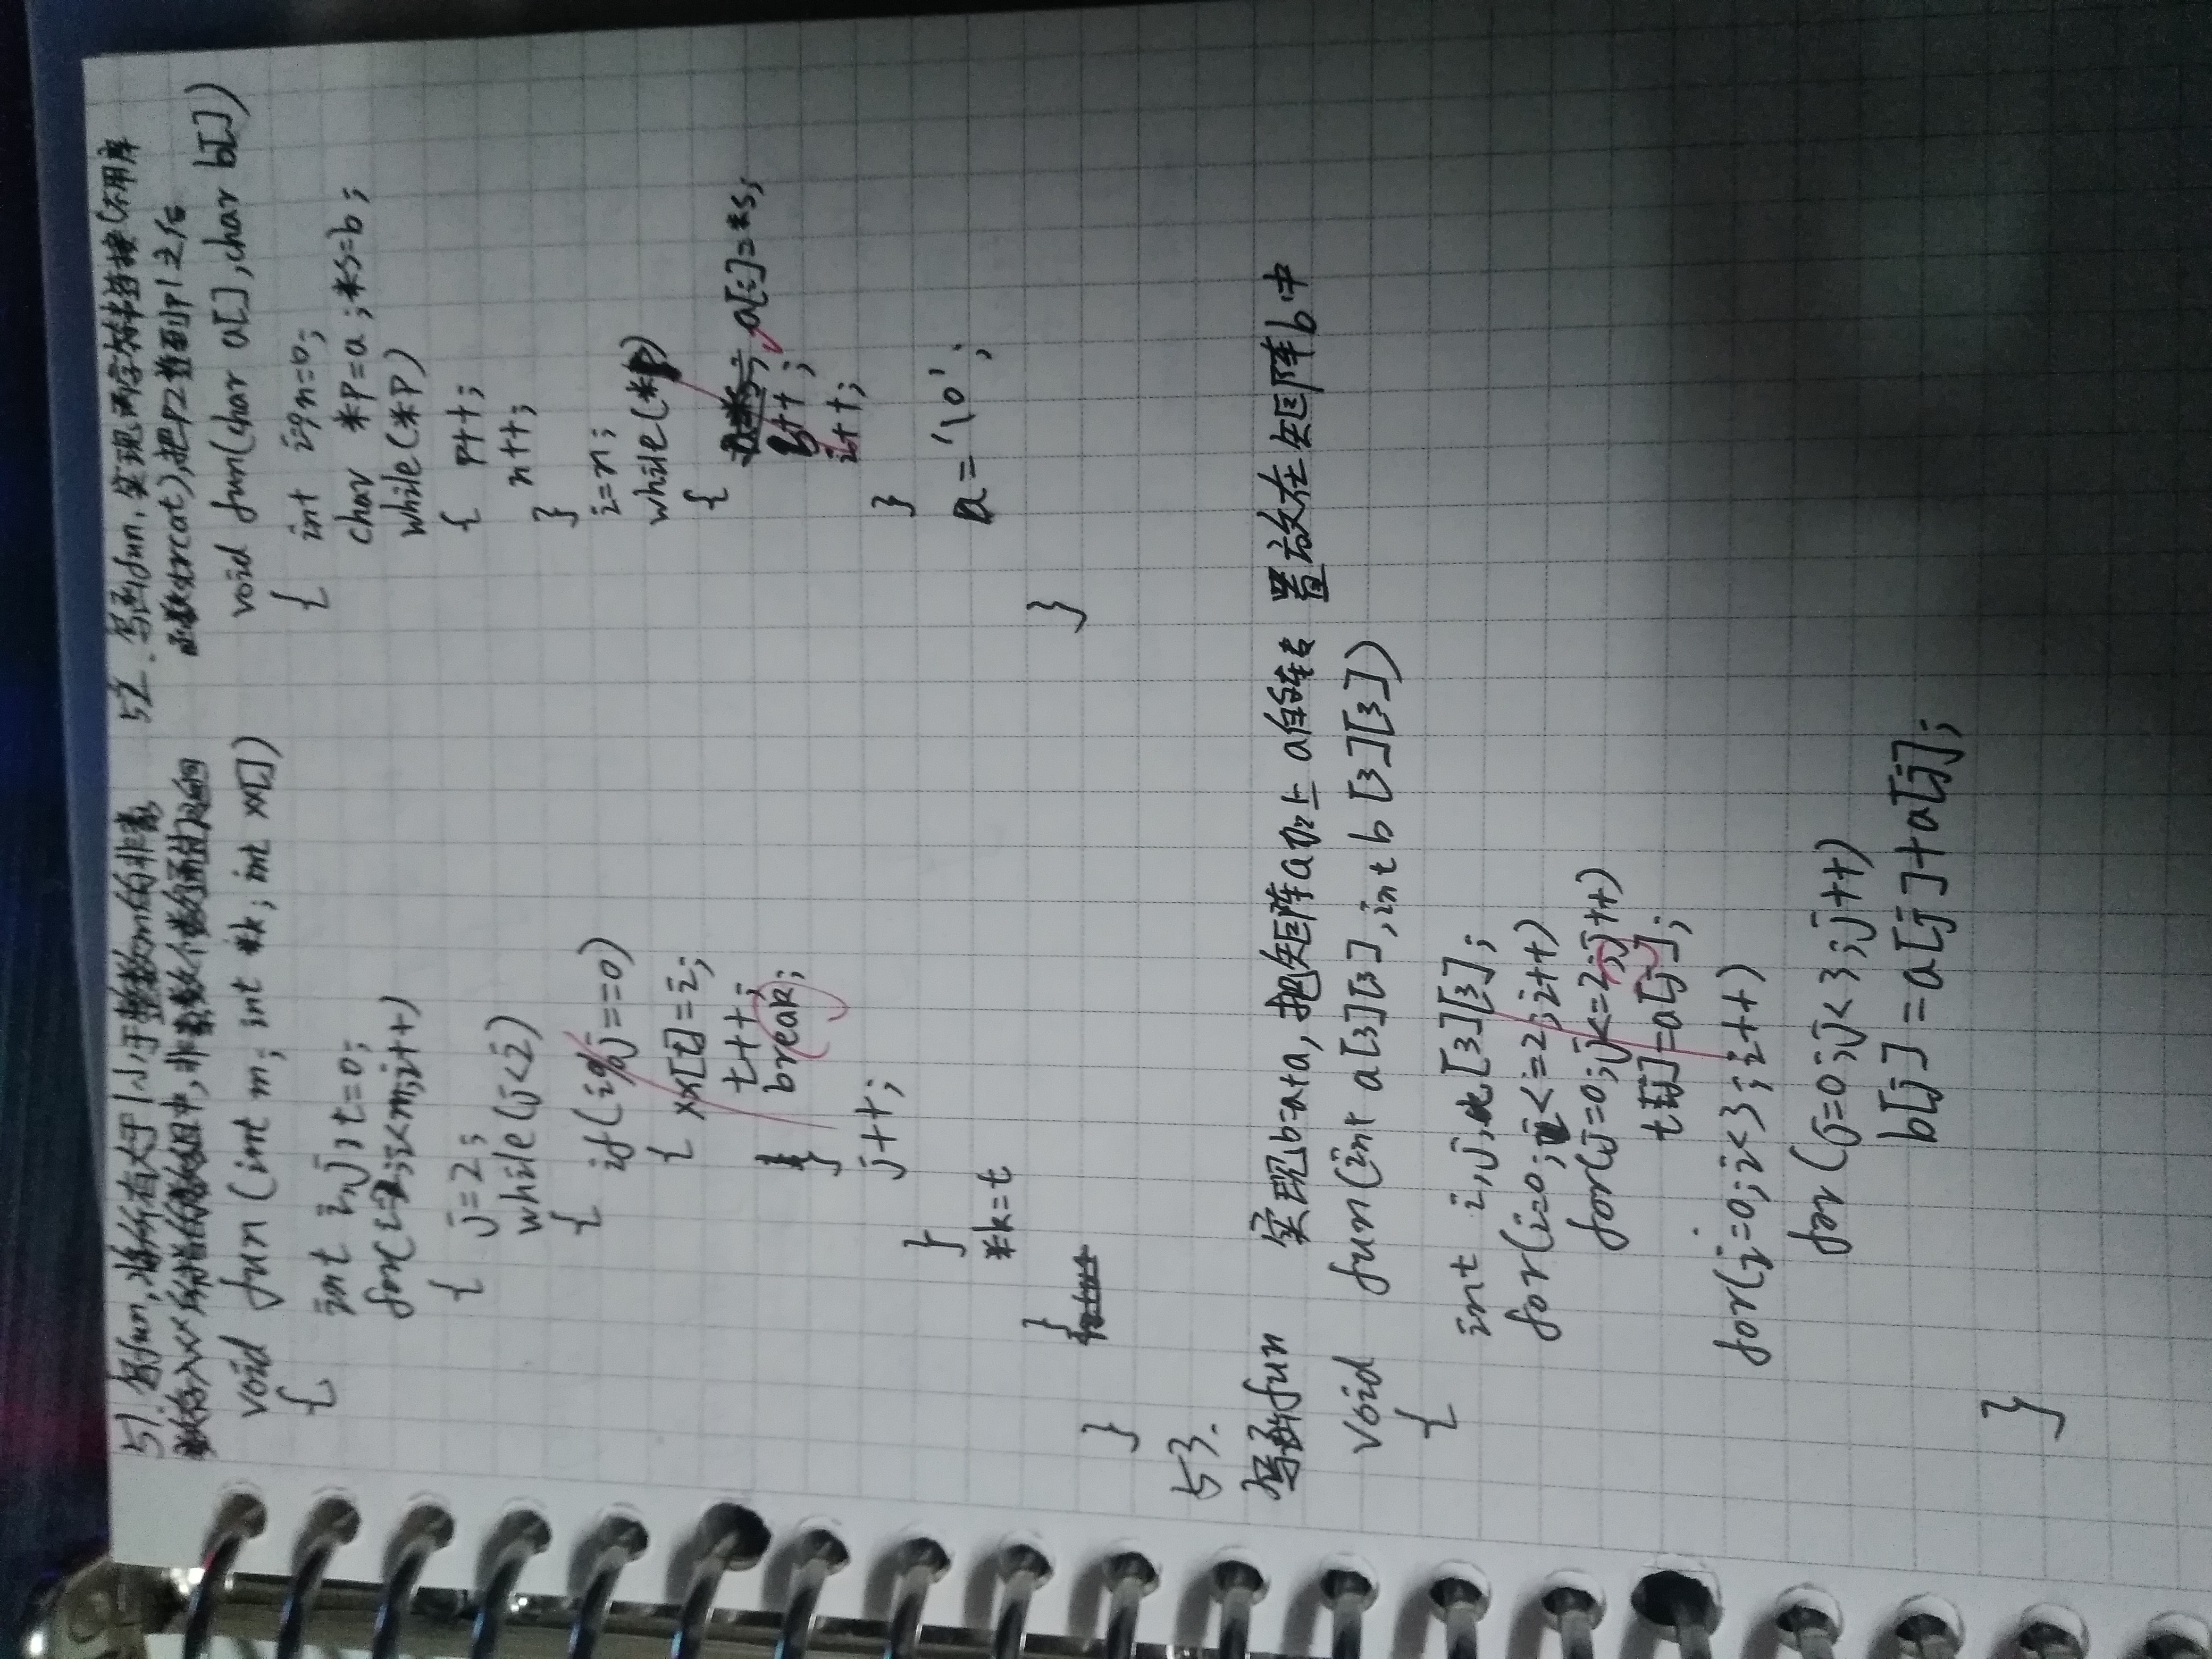 51. 写fun,将所有大于1小于整数m的非素
数存入xx所指的数组中,非素数个数通过k返回
void fun (int m; int *k; int xx[])
{
int i,j,t=0;
for(i=2;i<m;i++)
{ j=2;
while(j<i)
{ if(i%j==0)
{ xx[t]=i;
t++;
break;
}
j++;
}
*k=t
}
}
52. 写函fun,实现两字符串连接(不用库
函数strcat),把p2接到p1之后
void fun(char a[],char b[])
{ int i,n=0;
char *p=a;*s=b;
while(*p)
{ p++;
n++;
}
i=n;
while(*p)
{ a[i]=*s;
s++;
i++;
}
a='\0';
}
53.
写函fun 实现b=a+a,把矩阵a加上a的转置放在矩阵b中
void fun(int a[3][3],int b[3][3])
{
int i,j,t[3][3];
for(i=0;i<=2;i++)
for(j=0;j<=2;j++)
t[j]=a[j];
for(j=0;i<3;i++)
for(j=0;j<3;j++)
b[j]=a[j]+a[j];
}